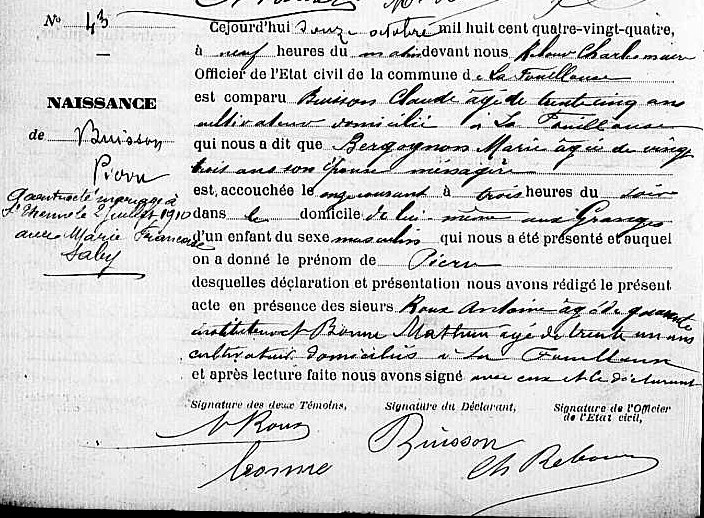 No 43
NAISSANCE
de Buisson
Pierre
a contracté mariage à
St Etienne le 2 juillet 1910
avec Marie Francoise
Saby
Cejourd'hui douze octobre mil huit cent quatre-vingt-quatre,
à neuf heures du matin devant nous Reboux Charles maire
Officier de l'Etat civil de la commune de La Fouillouse
est comparu Buisson Claude âgé de trente cinq ans
cultivateur domicilié à La Fouillouse
qui nous a dit que Bergognon Marie agée de vingt
trois ans son épouse ménagère
est, accouchée le onze courant à trois heures du soir
dans le domicile de lui-même aux Granges
d'un enfant du sexe masculin qui nous a été présenté et auquel
on a donné le prénom de Pierre
desquelles déclaration et présentation nous avons rédigé le présent
acte en présence des sieurs Roux Antoine âgé de quarante
instituteur et Bonne Mathieu agé de trente un ans
cultivateur domiciliés à La Fouillouse
et après lecture faite nous avons signé avec eux et le déclarant
Signature des deux Témoins, Signature du Déclarant, Signature de l'Officier
de l'Etat civil,
A Roux
Buisson
Ch Reboux